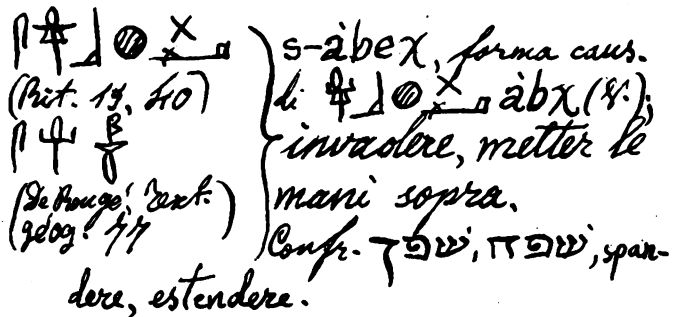 (Rit. 19, 40)
(De Rougé, Text.
géog. 77)
s-àbeχ, forma caus.
di àbχ (V.);
invadere, metter le
mani sopra.
Confr. שפך, שפח, span-
dere, estendere.